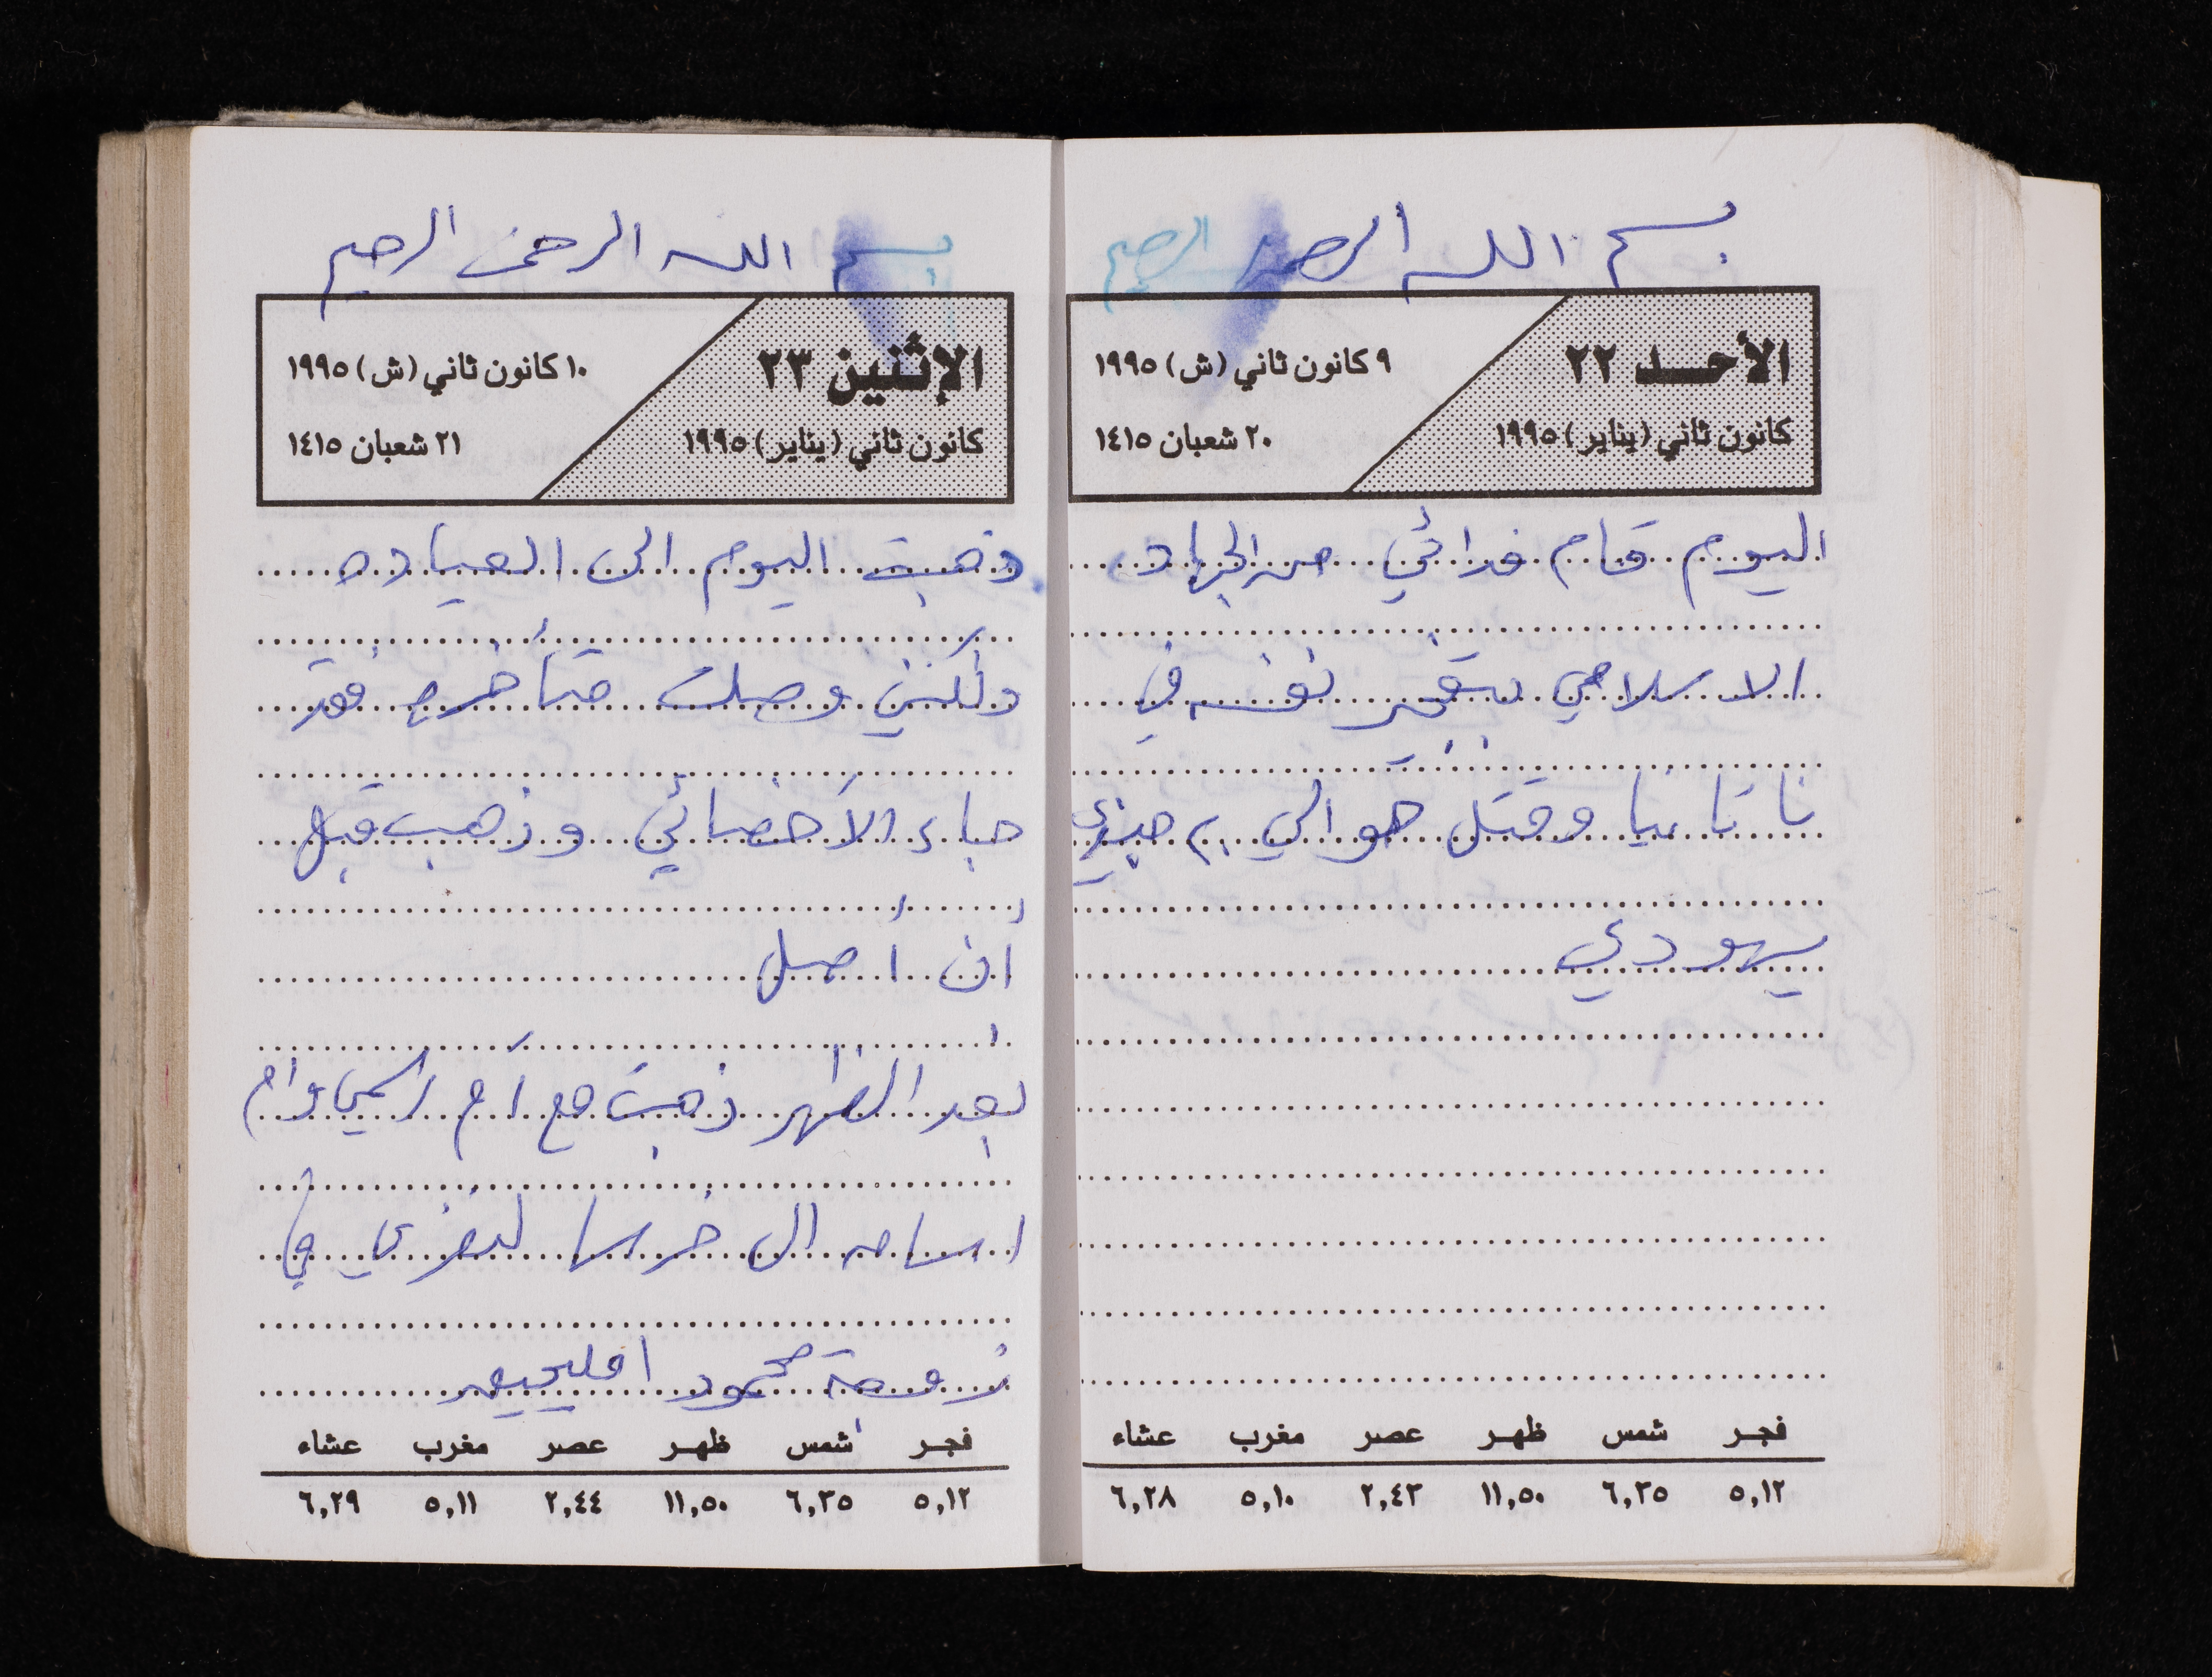 بسم الله الرحمن الرحيم
الأحـــد ٢٢
كانون ثاني (يناير) ١٩٩٥
٩ كانون ثاني (ش) ١٩٩٥
٢٠ شعبان ١٤١٥
اليوم قام فدائي من الجهاد
الاسلامي بتفجير نفسه في
ناتانيا وقتل حوالي ٢٠ جندي
يهودي
فجـر شمس ظهـر عصر مغرب عشاء
٥,١٢ ٦,٣٥ ١١,٥٠ ٢,٤٣ ٥,١٠ ٦,٢٨
بسم الله الرحمن الرحيم
الإثنين ٢٣
كانون ثاني (يناير) ١٩٩٥
١٠ كانون ثاني (ش) ١٩٩٥
٢١ شعبان ١٤١٥
ذهبت اليوم الى العياده
ولكنني وصلت متأخره فقد
جاء الأخصائي وذهب قبل
أن أصل
بعد الظهر ذهبت مع أم رامي وام
اسامه الى خرسا لنعزي في
زوجة محمود
فجـر شمس ظهـر عصر مغرب عشاء
٥,١٢ ٦,٣٥ ١١,٥٠ ٢,٤٤ ٥,١١ ٦,٢٩